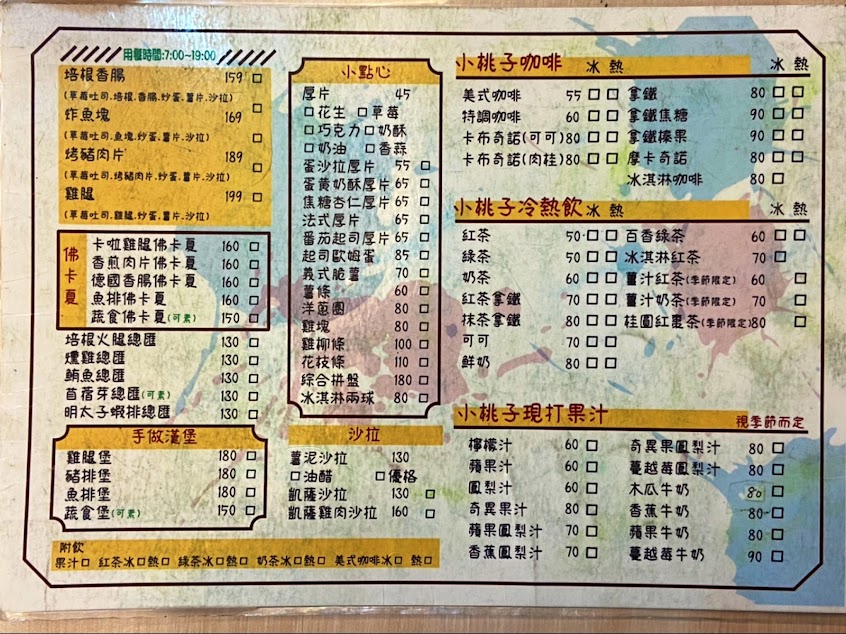 用餐時間:7:00~19:00
培根香腸 159 □
(草莓吐司.培根.香腸.炒蛋.薯片.沙拉)
炸魚塊 169 □
(草莓吐司.魚塊.炒蛋.薯片.沙拉)
烤豬肉片 189 □
(草莓吐司.烤豬肉片.炒蛋.薯片.沙拉)
雞腿 199 □
(草莓吐司.雞腿.炒蛋.薯片.沙拉)
佛卡夏
卡啦雞腿佛卡夏 160 □
香煎肉片佛卡夏 160 □
德國香腸佛卡夏 160 □
魚排佛卡夏 160 □
蔬食佛卡夏(可素) 150 □
培根火腿總匯 130 □
燻雞總匯 130 □
鮪魚總匯 130 □
苜蓿芽總匯(可素) 130 □
明太子蝦排總匯 130 □
手做漢堡
雞腿堡 180 □
豬排堡 180 □
魚排堡 180 □
蔬食堡(可素) 150 □
附飲
果汁□ 紅茶冰□熱□ 綠茶冰□熱□ 奶茶冰□熱□ 美式咖啡冰□ 熱□
小點心
厚片 45
□花生 □草莓
□巧克力□奶酥
□奶油 □香蒜
蛋沙拉厚片 55 □
蛋黃奶酥厚片 65 □
焦糖杏仁厚片 65 □
法式厚片 65 □
番茄起司厚片 65 □
起司歐姆蛋 85 □
義式脆薯 70 □
薯條 60 □
洋蔥圈 80 □
雞塊 80 □
雞柳條 100 □
花枝條 110 □
綜合拼盤 180 □
冰淇淋兩球 80 □
沙拉
薯泥沙拉 130
□油醋 □優格
凱薩沙拉 130 □
凱薩雞肉沙拉 160 □
小桃子咖啡 冰 熱 冰 熱
美式咖啡 55 □ □ 拿鐵 80 □ □
特調咖啡 60 □ □ 拿鐵焦糖 90 □ □
卡布奇諾(可可) 80 □ □ 拿鐵榛果 90 □ □
卡布奇諾(肉桂) 80 □ □ 摩卡奇諾 80 □ □
冰淇淋咖啡 80 □
小桃子冷熱飲 冰 熱 冰 熱
紅茶 50 □ □ 百香綠茶 60 □ □
綠茶 50 □ □ 冰淇淋紅茶 70 □
奶茶 60 □ □ 薑汁紅茶(季節限定) 60 □
紅茶拿鐵 70 □ □ 薑汁奶茶(季節限定) 70 □
抹茶拿鐵 80 □ □ 桂圓紅棗茶(季節限定) 80 □
可可 70 □ □
鮮奶 80 □ □
小桃子現打果汁 視季節而定
檸檬汁 60 □ 奇異果鳳梨汁 80 □
蘋果汁 60 □ 蔓越莓鳳梨汁 80 □
鳳梨汁 60 □ 木瓜牛奶 80 □
奇異果汁 80 □ 香蕉牛奶 80 □
蘋果鳳梨汁 70 □ 蘋果牛奶 80 □
香蕉鳳梨汁 70 □ 蔓越莓牛奶 90 □